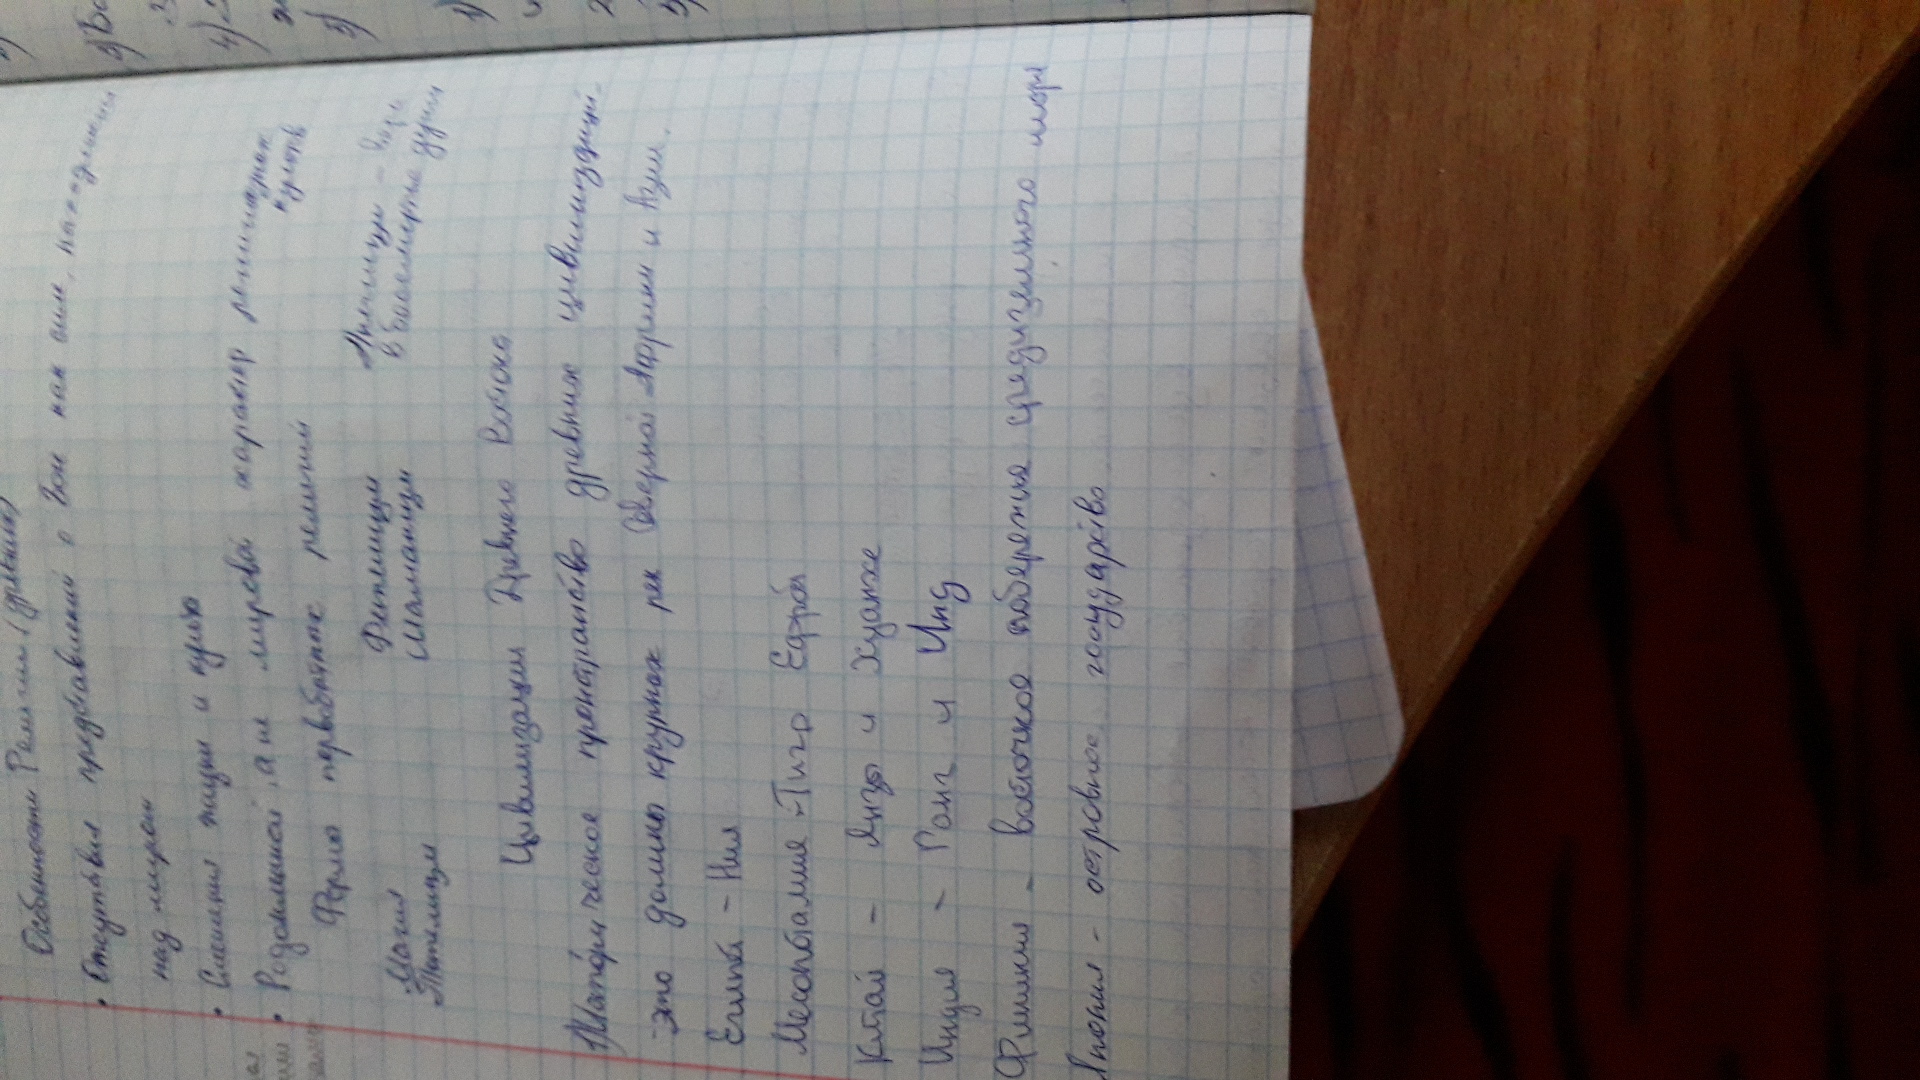 Особенности Религии (древних)
• Отсутствия представлений о Боге как силе, находящийся
над миром
• Смешении жизни и культ
• Родоплемной, а не мировой характер религиозных
культов
Формы первобытных религий
Магия Фетишизм Анимизм – вера
Тотемизм Шаманизм в бессмертие души
Цивилизации Древнего Востока
1) Историческое пространство древних цивилизаций-
-это долины крупных рек Северной Африки и Азии.
Египет - Нил
Месопотамия - Тигр Ефрат
Китай - Янзы и Хуанхе
Индия - Ганг и Инд
Финикия - восточное побережия средиземного моря
Япония - островное государство